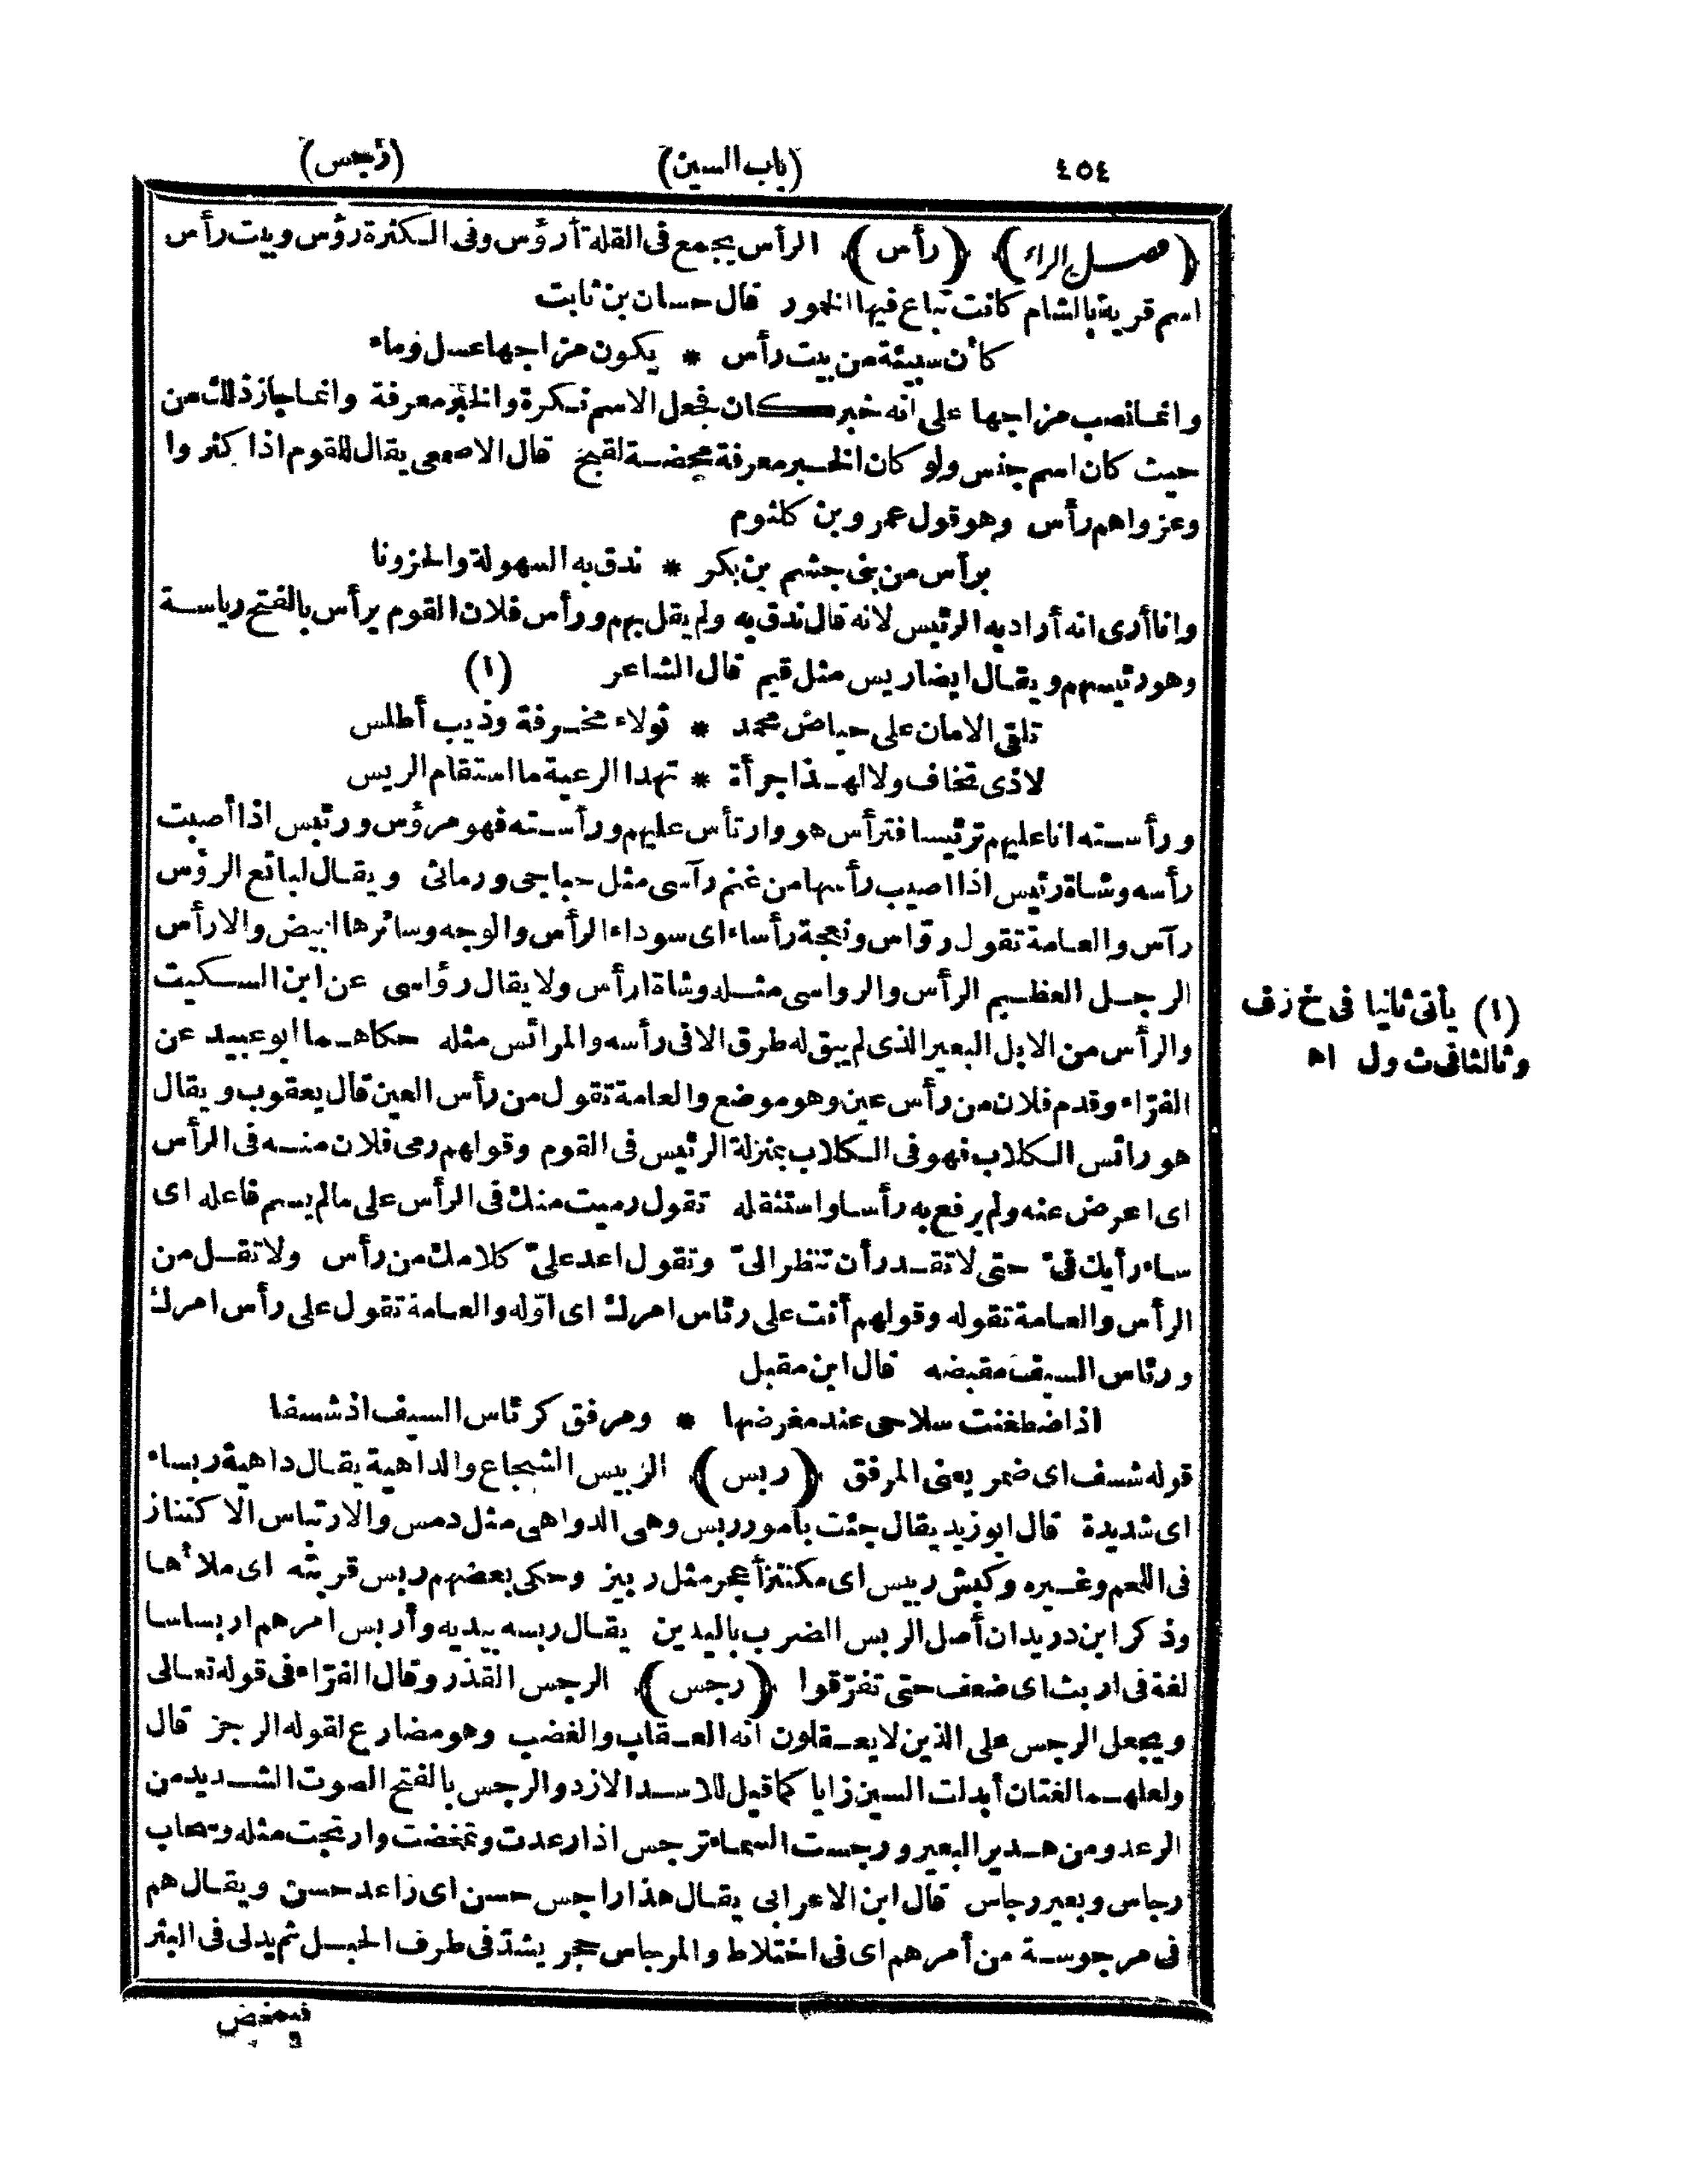 ٤٥٤
(باب السين)
(رجس)
﴿فصل الراء﴾ ﴿رأس﴾ الرأس يجمع فى القلة أرؤس وفى الكثرة رؤس وبيت رأس
اسم قرية بالشام كانت تباع فيها الخمور قال حسان بن ثابت
كأن سبيئة من بيت رأس * يكون مزاجها عسل وماء
وانما نصب مزاجها على انه خبر كان فجعل الاسم نكرة والخبر معرفة وانما جاز ذلك من
حيث كان اسم جنس ولو كان الخبر معرفة محضة لقبح قال الاصمعى يقال للقوم اذا كثروا
وعزوا هم رأس وهو قول عمرو بن كلثوم
برأس من بنى جشم بن بكر * ندق به السهولة والحزونا
وانا أرى انه أراد به الرئيس لانه قال ندق به ولم يقل بهم ورأس فلان القوم يرأس بالفتح رياسة
وهو رئيسهم ويقال ايضا ريس مثل قيم قال الشاعر (١)
تلقى الامان على حياض محمد * ثولاء مخرفة وذيب أطلس
لاذى تخاف ولا لهذا جرأة * تهدا الرعية ما استقام الريس
ورأسته انا عليهم ترئيسا فترأس هو وارتأس عليهم ورأسته فهو مرؤس ورئيس اذا أصبت
رأسه وشاة رئيس اذا اصيب رأسها من غنم رآسى مثل حباجى ورماثى ويقال لبائع الرؤس
رآس والعامة تقول رواس ونعجة رأساء اى سوداء الرأس والوجه وسائرها ابيض والارأس
الرجل العظيم الرأس والرواسى مثله وشاة ارأس ولا يقال رؤاسى عن ابن السكيت
والرأس من الابل البعير الذى لم يبق له طرق الا فى رأسه والمرائس مثله حكاهما ابو عبيد عن
الفرّاء وقدم فلان من رأس عين وهو موضع والعامة تقول من رأس العين قال يعقوب ويقال
هو رائس الكلاب فهو فى الكلاب بمنزلة الرئيس فى القوم وقولهم رمى فلان منه فى الرأس
اى اعرض عنه ولم يرفع به رأسا واستثقله تقول رميت منك فى الرأس على ما لم يسم فاعله اى
ساء رأيك فىّ حتى لا تقدر أن تنظر الىّ وتقول اعد علىّ كلامك من رأس ولا تقل من
الرأس والعامة تقوله وقولهم أنت على رئاس امرك اى اوّله والعامة تقول على رأس امرك
ورئاس السيف مقبضه قال ابن مقبل
اذا ضطغنت سلاحى عند مغرضها * ومرفق كرئاس السيف اذ شسفا
قوله شسف اى ضمر يعنى المرفق ﴿ربس﴾ الربيس الشجاع والداهية يقال داهية ربساء
اى شديدة قال ابو زيد يقال جئت بأمور ربس وهى الدواهى مثل دمس والارتباس الاكتناز
فى اللحم وغيره وكبش ربيس اى مكتنز أعجر مثل ربيز وحكى بعضهم ربس قربته اى ملأها
وذكر ابن دريد ان أصل الربس الضرب باليدين يقال ربسه بيديه وأربس امرهم اربساسا
لغة فى اربث اى ضعف حتى تفرّقوا ﴿رجس﴾ الرجس القذر وقال الفرّاء فى قوله تعالى
ويجعل الرجس على الذين لا يعقلون انه العقاب والغضب وهو مضارع لقوله الرجز قال
ولعلهما لغتان أبدلت السين زايا كما قيل للاسد الازد والرجس بالفتح الصوت الشديد من
الرعد ومن هدير البعير ورجست السماء ترجس اذا رعدت وتمخضت وارتجست مثله وسحاب
رجاس وبعير رجاس قال ابن الاعرابى يقال هذا راجس حسن اى راعد حسن ويقال هم
فى مرجوسة من أمرهم اى فى اختلاط والمرجاس حجر يشدّ فى طرف الحبل ثم يدلى فى البئر
فيمخض
(١) يأتى ثانيا فى خ ر ف
وثالثا فى ث و ل اه